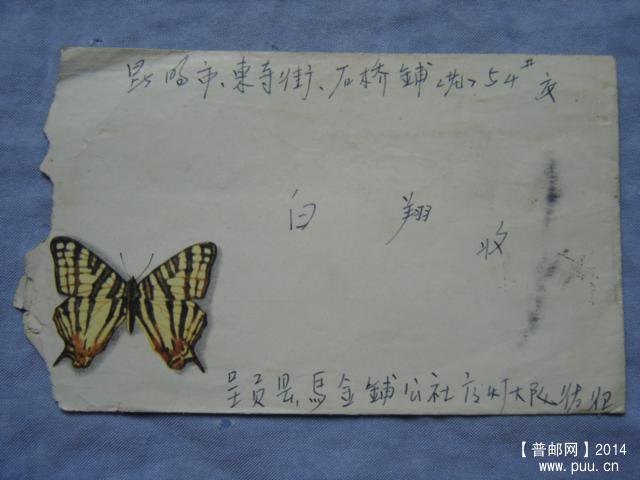 昆明市、東寺街、石桥鋪 54# 交
白 翔 收
呈貢县、馬金鋪公社 大队
【普邮网】2014
www.puu.cn